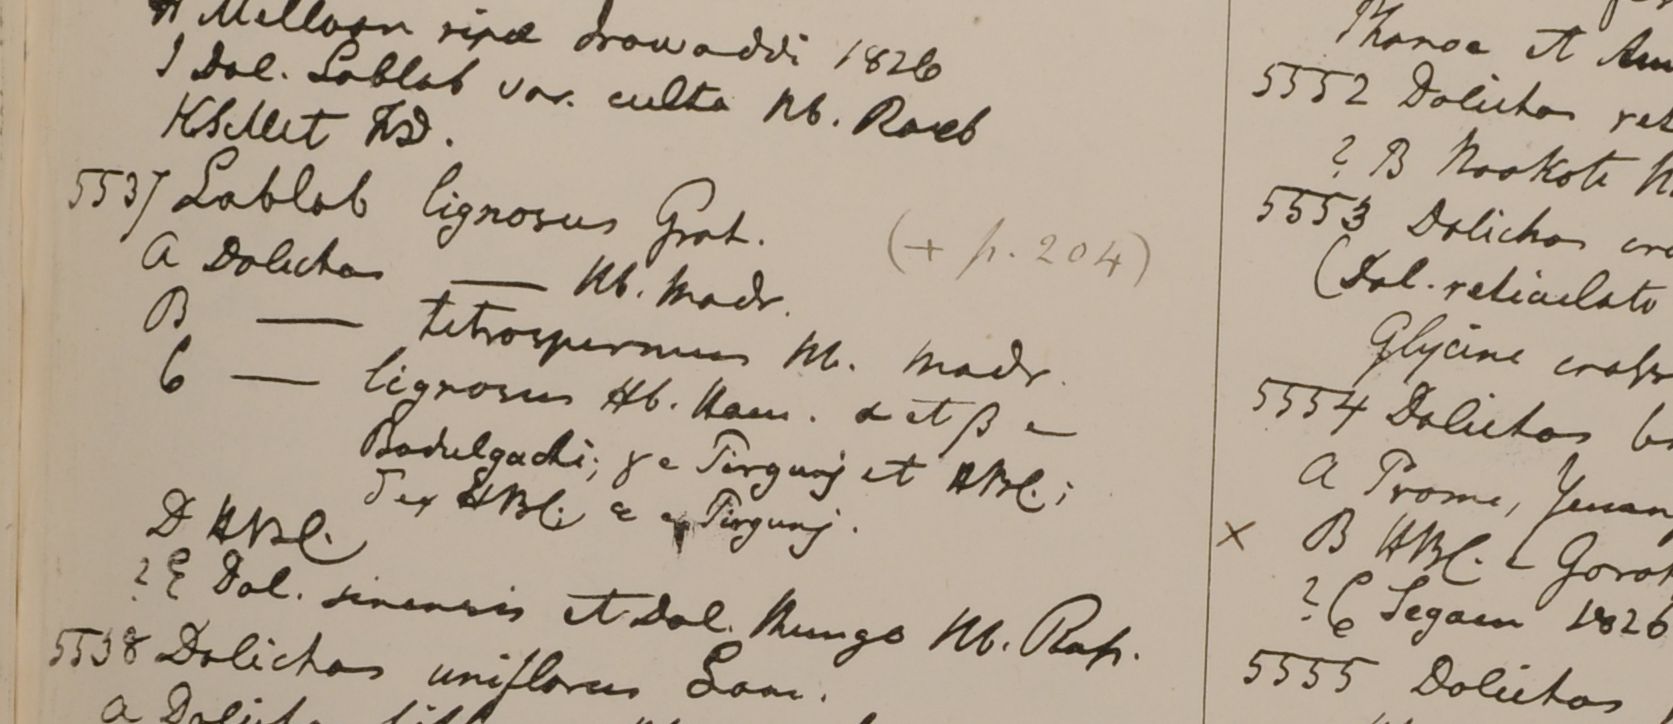 H Melloon ripa Irawaddi 1826
I Dol. Lablab var. culta Hb. Roxb
5537 Lablab lignosus Grah. (+ p. 204)
A Dolichos — Hb. Madr.
B — tetraspermus Hb. Madr.
C — lignosus Hb. Ham. α et β e
Badulgachi; γ e Tirgunj et HBC;
δ ex HBC; ε e Tirgunj.
D HBC.
? E Dol. sinensis et Dol. Mungo Hb. Rap.
5538 Dolichos uniflorus Lam.
A
et
5552 Dolichos
? B Nookote
5553 Dolichos
(Dol. reticulato
Glycine
5554 Dolichos
A Prome,
× B HBC. e
? C Segaen 1826
5555 Dolichos